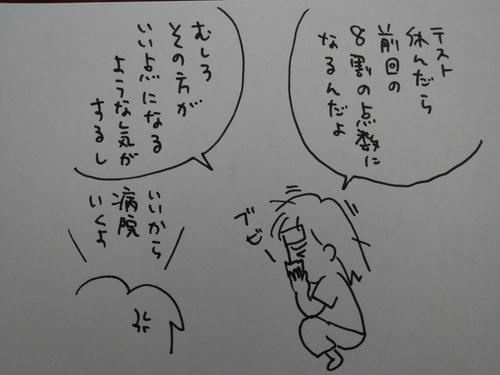 テスト
休んだら
前回の
8割の点数に
なるんだよ
むしろ
その方が
いい点になる
ような気が
するし
ブビー
いいから
病院
いくよ